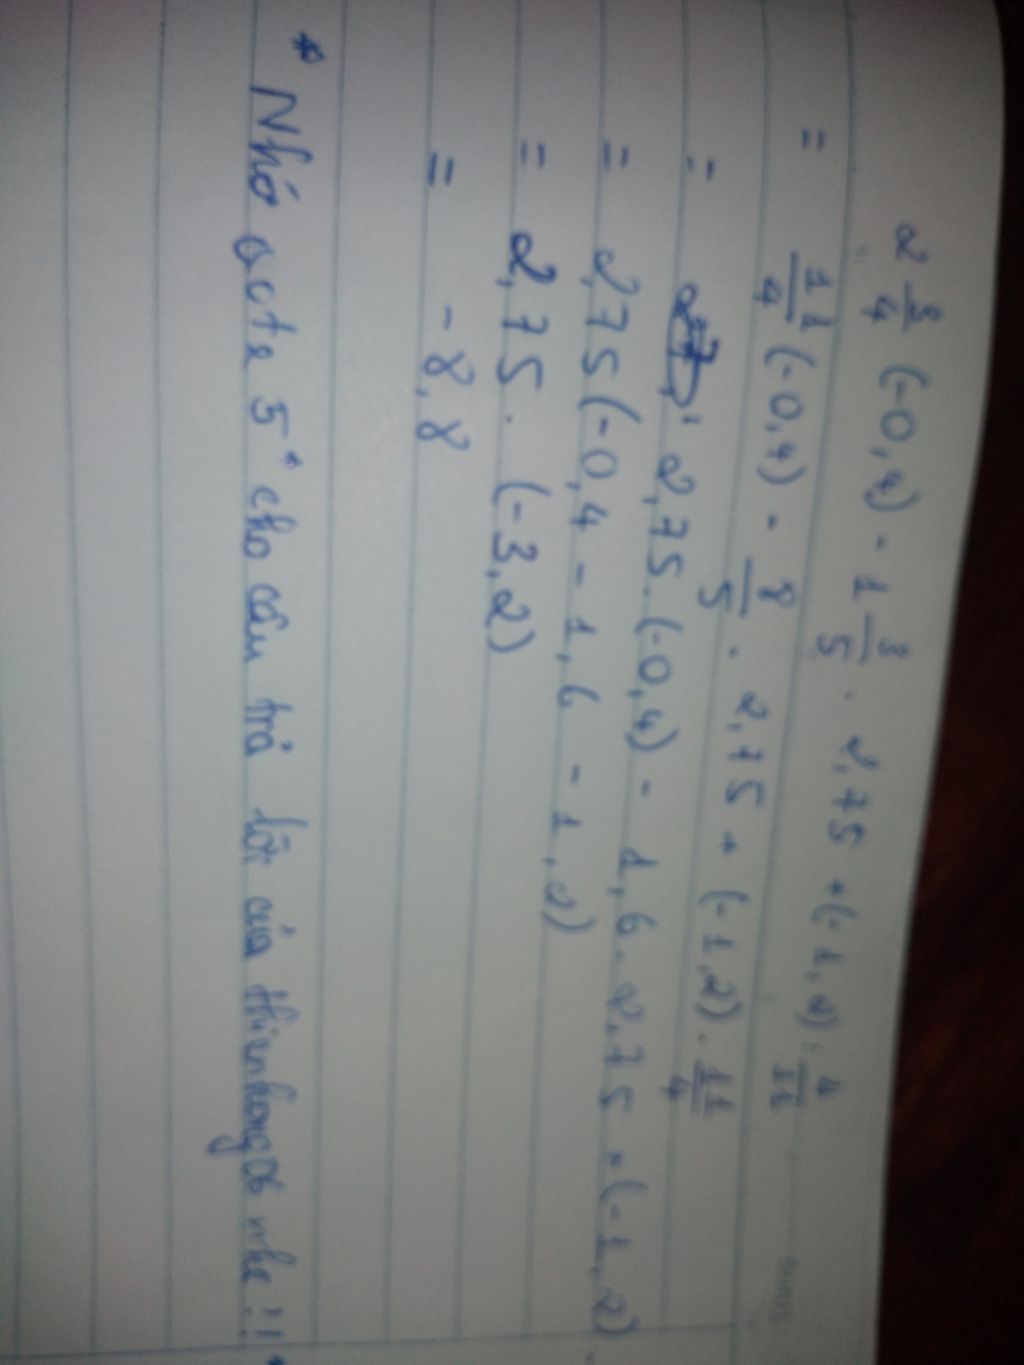 2 3/4 (-0,4) - 1 3/5 . 2,75 + (-1,2) : 4/11
= 11/4 (-0,4) - 8/5 . 2,75 + (-1,2) . 11/4
= 2,75 . (-0,4) - 1,6 . 2,75 + (-1,2) .
= 2,75 (-0,4 - 1,6 - 1,2)
= 2,75 . (-3,2)
= -8,8
* Nhớ vote 5* cho câu trả lời của thienhong nhe!!